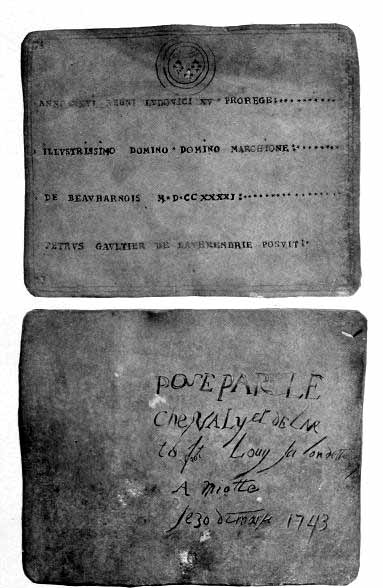 ANNO XXVI REGNI LVDOVICI XV PROREGE
ILLVSTRISSIMO DOMINO DOMINO MARCHIONE
DE BEAVHARNOIS M·D·CCXXXXI
PETRVS GAVLTIER DE LAVERENDRIE POSVIT
POSE PAR LE
Chevalyet de Lave
to St Louy la Londette
A Miotte
Le 30 de mars 1743